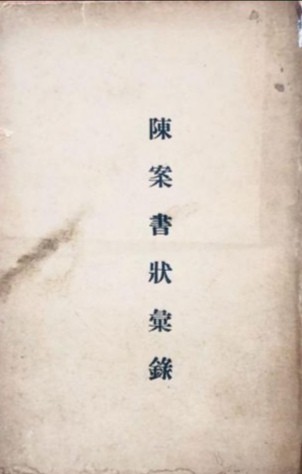 陳案書狀彙錄